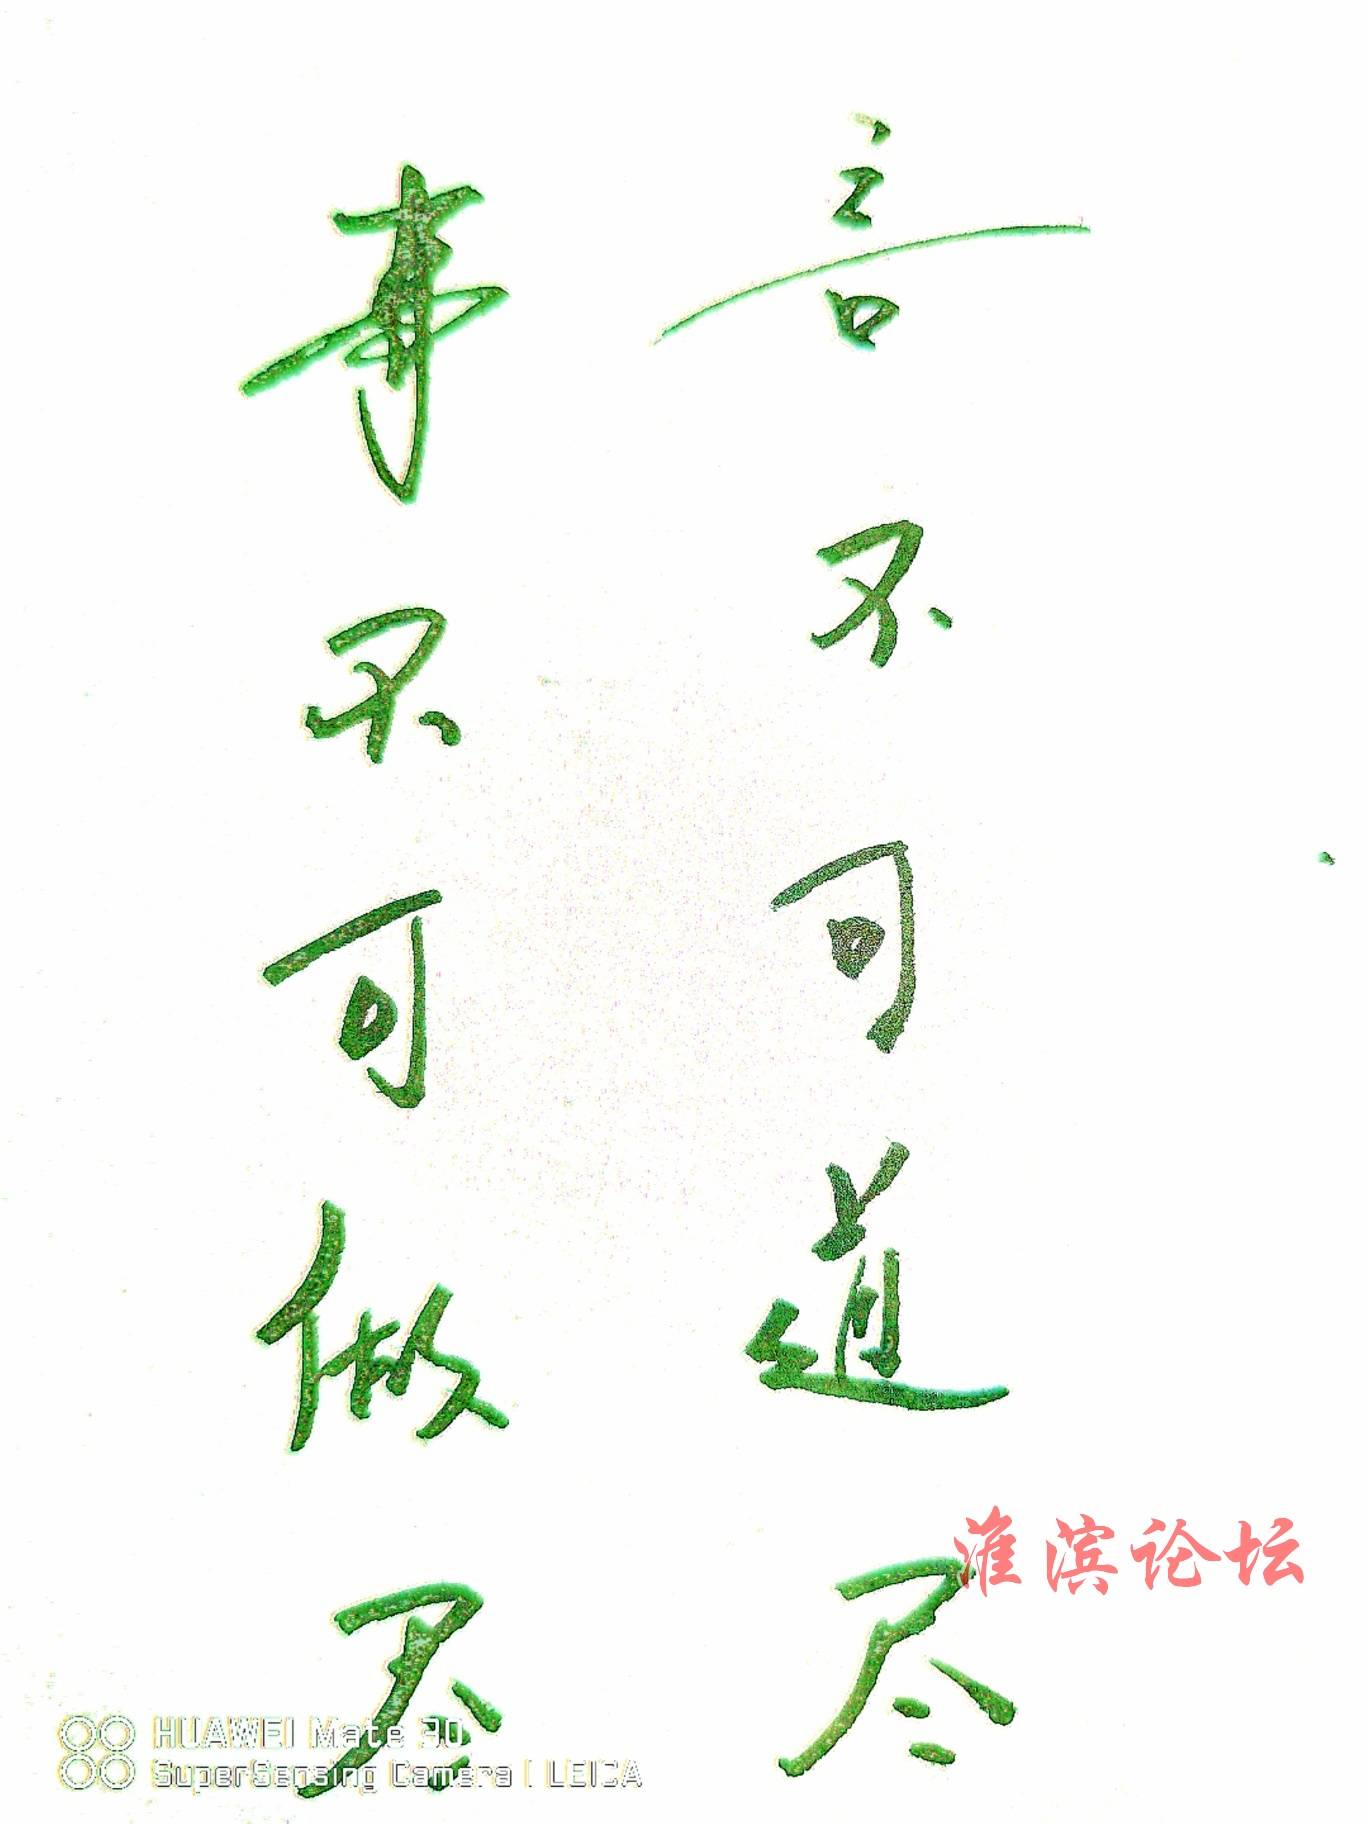 言不可道尽
事不可做尽
淮滨论坛
HUAWEI Mate 30
SuperSensing Camera | LEICA